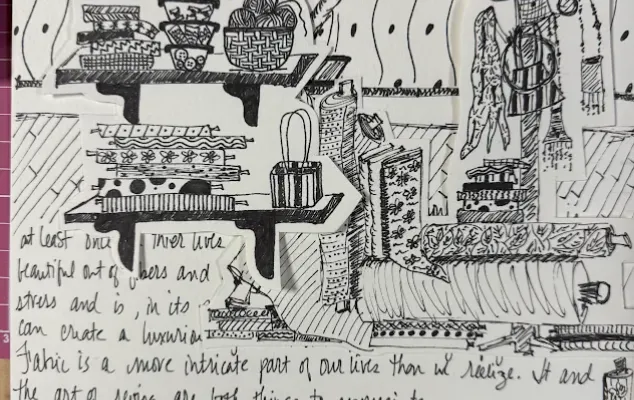 at least once inner lives
beautiful out of fibers and
stress and is, in its
can create a luxurian
Fabric is a more intricate part of our lives than we realize. It and
the art of sewing are both things to
3